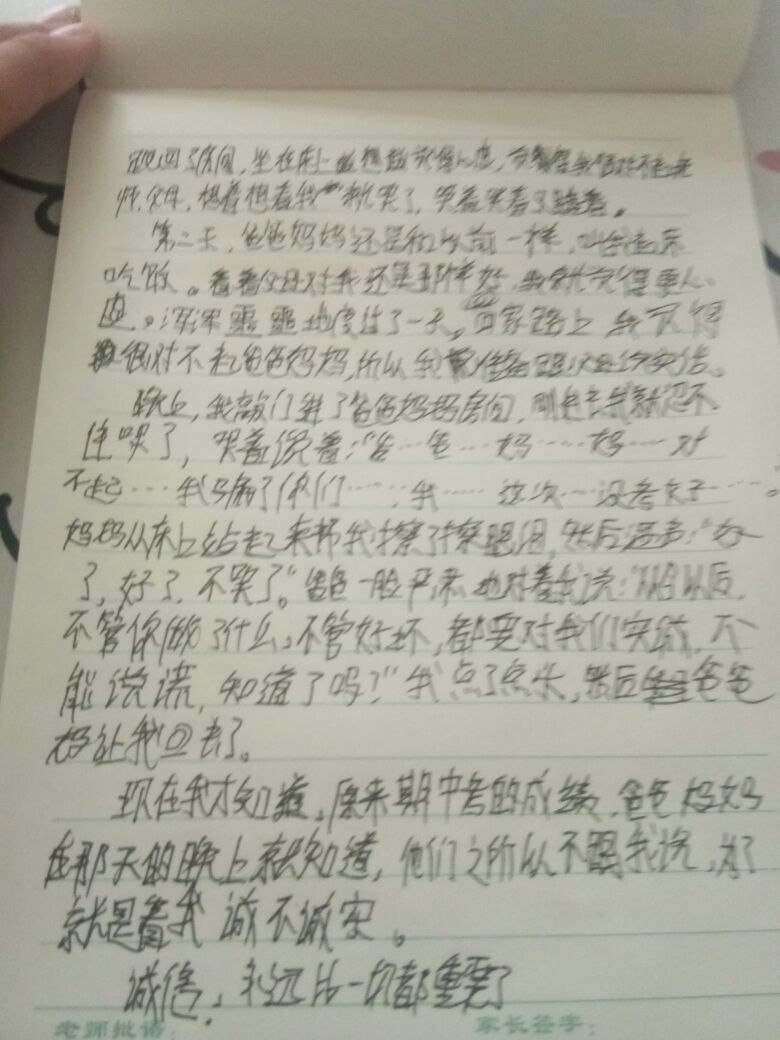 回了房间，坐在床上越想越觉得心虚，
师，父母，想着想着我就哭了，哭着哭着
第二天，爸爸妈妈还是和以前一样，叫我起床
吃饭。看着父母对我还是那样好，我就觉得更心
虚。浑浑噩噩地度过了一天，回家路上我觉得
很对不起爸爸妈妈，所以我准备
晚上，我敲门进了爸爸妈妈房间，刚进去我就忍不
住哭了，哭着说着：“爸……爸……妈……妈……对
不起……我骗了你们……，我……这次……没考好……。
妈妈从床上站起来帮我擦了擦眼泪，然后温声：“好
了，好了，不哭了。”爸爸一脸严肃地对着我说：“从今以后，
不管你做了什么，不管好坏，都要对我们实诚，不
能说谎，知道了吗？”我点了点头，然后爸爸
妈让我回去了。
现在我才知道，原来期中考的成绩，爸爸妈妈
在那天的晚上就知道，他们之所以不跟我说，为了
就是看我诚不诚实。
诚信，永远比一切都重要了
老师批语：
家长签字：